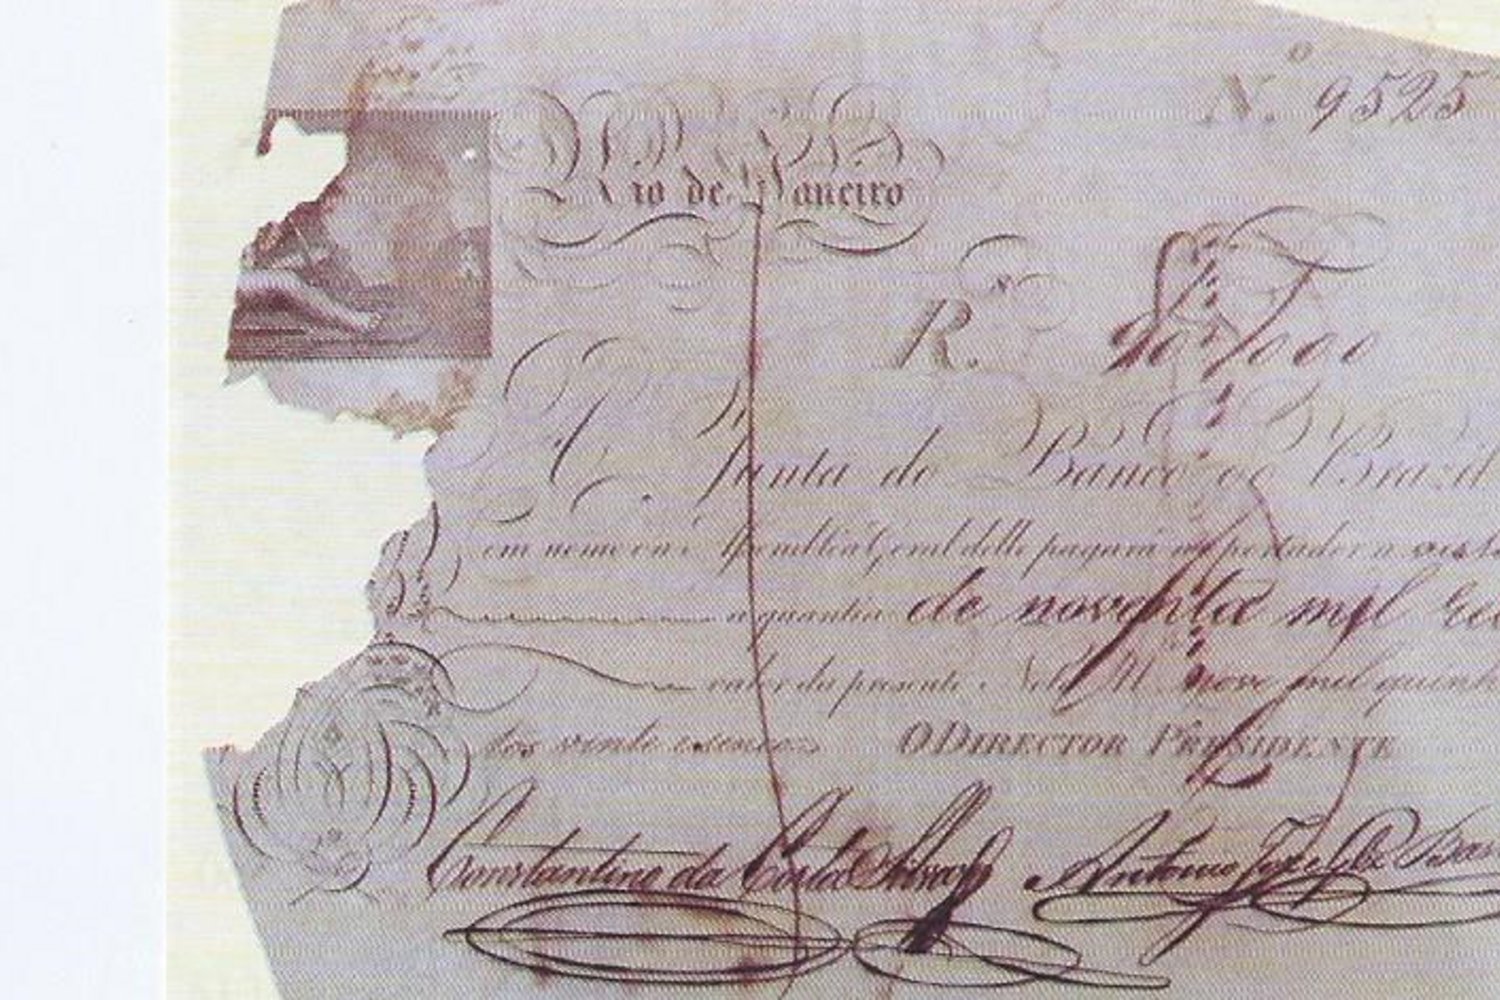 N.º 9525
Rio de Janeiro
R.s 90$000
A Junta do Banco do Brazil
em nome da Assemblea Geral delle pagará ao portador a vista
a quantia de noventa mil
valor da presente Nº nove mil quinhen
tos vinte e cinco
O DIRECTOR PRESIDENTE
Constantino da Costa Antonio José da